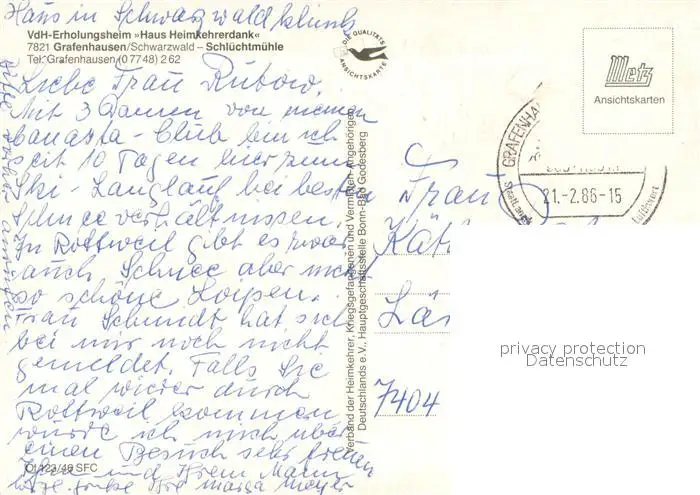 Haus in Schwarzwaldklinik
VdH-Erholungsheim »Haus Heimkehrerdank«
7821 Grafenhausen/Schwarzwald – Schlüchtmühle
Tel. Grafenhausen (0 77 48) 2 62
Liebe Frau Rubow,
Mit 3 Damen von meinem
Canasta-Club bin ich
seit 10 Tagen hier zum
Ski-Langlauf bei besten
Schneeverhältnissen.
In Rottweil gibt es zwar
auch Schnee aber nicht
so schöne Loipen.
Frau Schmidt hat sich
bei mir noch nicht
gemeldet. Falls Sie
mal wieder durch
Rottweil kommen
würde ich mich über
einen Besuch sehr freuen
Ihnen und Ihrem Mann
Grüße Ihre Marga Meyer
Bitte vorher anrufen
Ol 123/46 SFC
Verband der Heimkehrer, Kriegsgefangenen und Vermißten-Angehörigen
Deutschlands e.V., Hauptgeschäftsstelle Bonn-Bad Godesberg
DIE QUALITÄTS
ANSICHTSKARTE
Metz
Ansichtskarten
GRAFENHA
21.-2.86-15
Frau
Kät
Lär
7404
privacy protection
Datenschutz